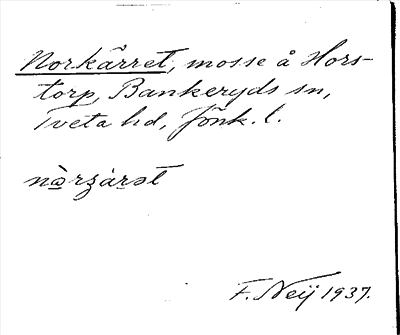 Norkärret, mosse å Hors-
torp, Bankeryds sn,
Tveta hd, Jönk. l.
nò̱rʒàrət
F. Neij 1937.